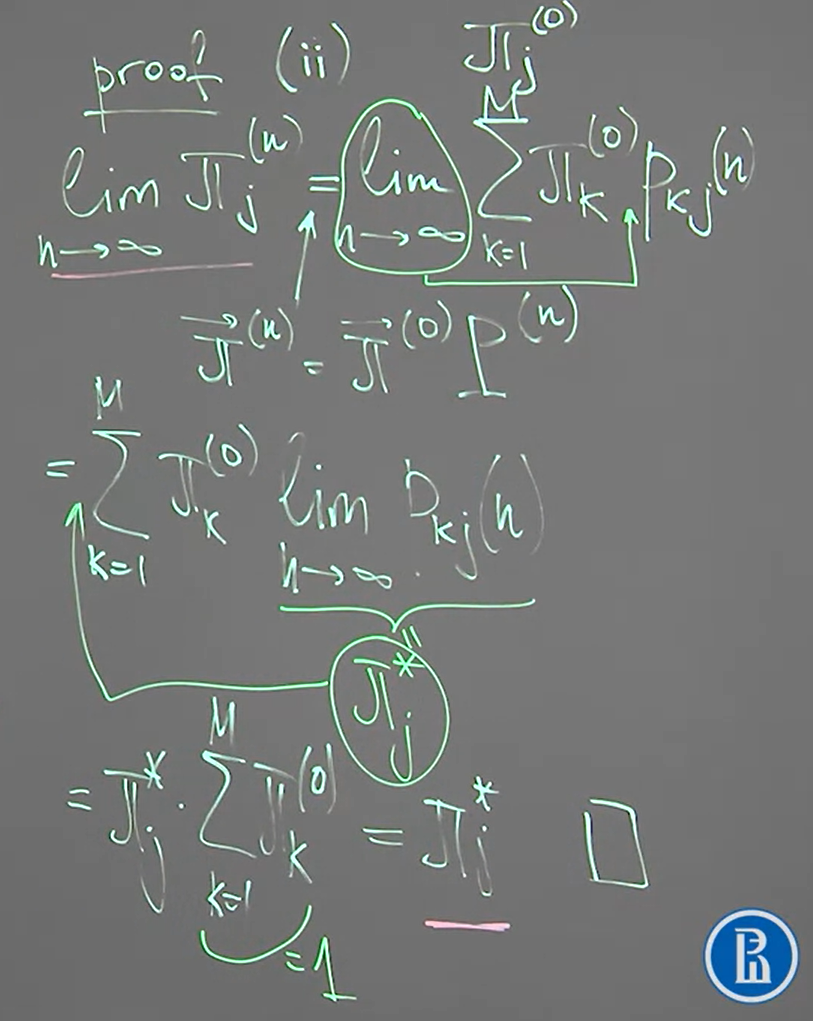 proof (ii) π_j^{(0)}
lim_{n→∞} π_j^{(n)} = lim_{n→∞} Σ_{k=1}^{M} π_k^{(0)} p_{kj}(n)
π⃗^{(n)} = π⃗^{(0)} P^{(n)}
= Σ_{k=1}^{M} π_k^{(0)} lim_{n→∞} p_{kj}(n)
=
π_j^*
= π_j^* · Σ_{k=1}^{M} π_k^{(0)} = π_j^* □
= 1